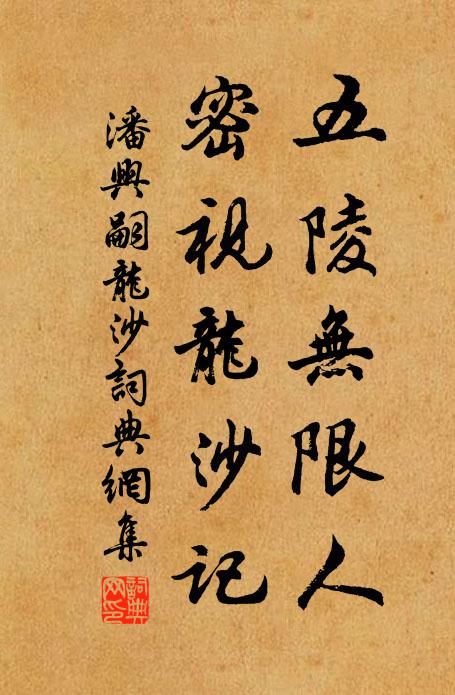 五陵無限人
密視龍沙記
潘興嗣龍沙詞典網集
詞典網印